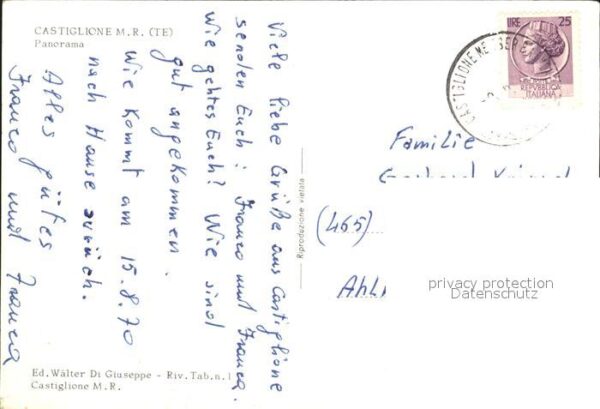 CASTIGLIONE M. R. (TE)
Panorama
Viele liebe Grüße aus Castiglione
senden Euch: Franco und Franca.
Wie gehtes Euch? Wie sind
gut angekommen.
Wie kommt am 15.8.70
nach Hause zurüch.
Alles gütes
Franco und Franca
Ed. Wàlter Di Giuseppe - Riv. Tab. n. 1
Castiglione M. R.
Riproduzione vietata
LIRE 25
REPVBBLICA
ITALIANA
CASTIGLIONE MESSER
Familie
(465)
Ahl
privacy protection
Datenschutz